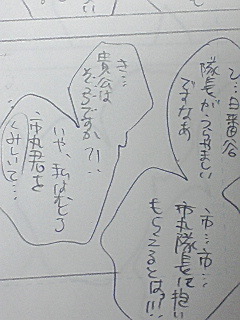 ひ…日番谷
隊長がうらやましい
ですなあ
市…市…
市丸隊長に抱い
もらえるとは!!!
き…
貴公は
そっちですか?!
いや、私はむしろ
市丸君を
くみしいて…